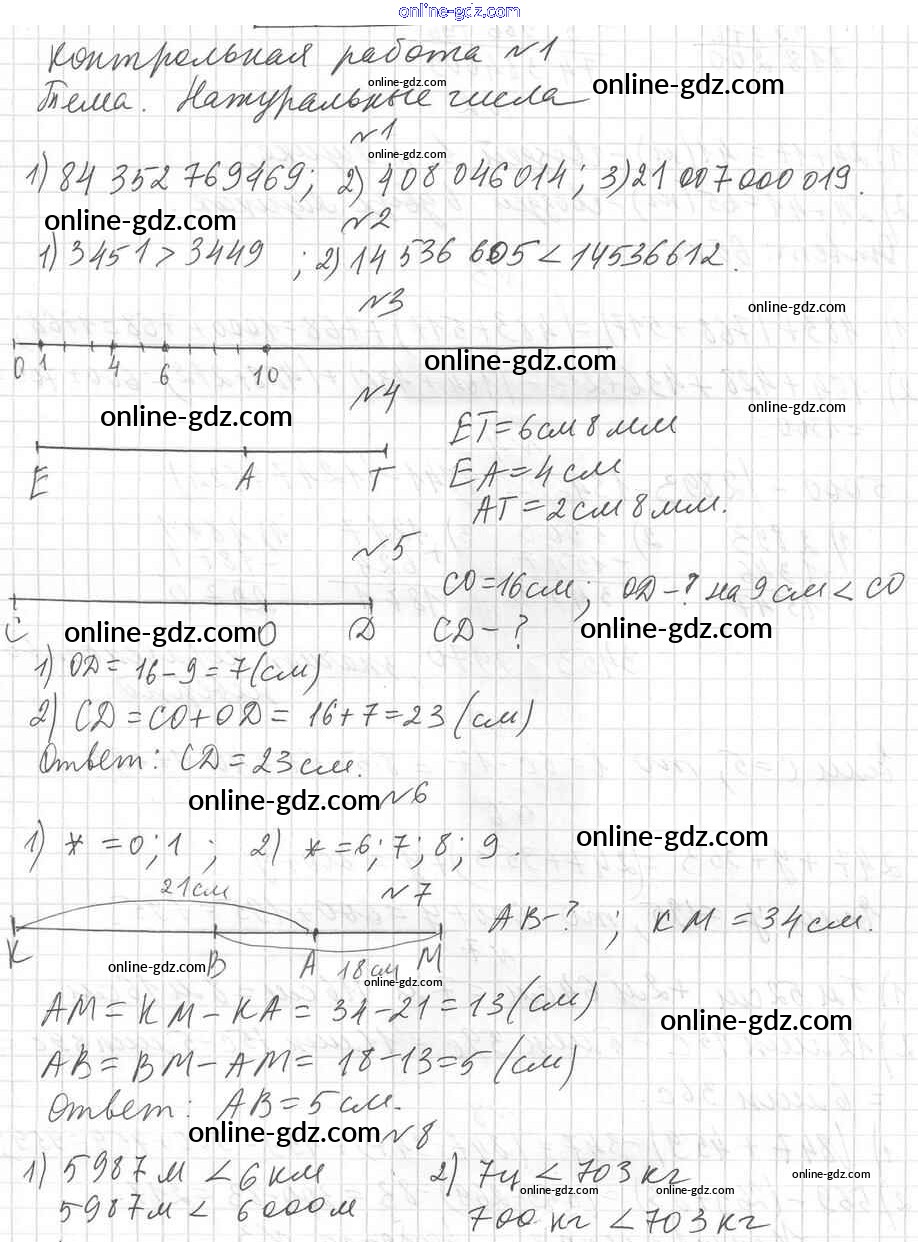 online-gdz.com
Контрольная работа №1
online-gdz.com
Тема. Натуральные числа
online-gdz.com
№1
online-gdz.com
1) 84 352 769 469; 2) 408 046 014; 3) 21 007 000 019.
online-gdz.com
№2
1) 3451 > 3449 ; 2) 14 536 605 < 14536612.
№3
online-gdz.com
0 1 4 6 10
online-gdz.com
№4
online-gdz.com
online-gdz.com
ET = 6 см 8 мм
E A T
EA = 4 см
AT = 2 см 8 мм.
№5
CO = 16 см; OD - ? на 9 см < CO
C O D
online-gdz.com
CD - ?
online-gdz.com
1) OD = 16 - 9 = 7 (см)
2) CD = CO + OD = 16 + 7 = 23 (см)
Ответ: CD = 23 см.
online-gdz.com
№6
1) * = 0; 1 ; 2) * = 6; 7; 8; 9.
online-gdz.com
21 см
№7
AB - ? ; KM = 34 см.
K B A M
online-gdz.com
18 см
online-gdz.com
AM = KM - KA = 34 - 21 = 13 (см)
online-gdz.com
AB = BM - AM = 18 - 13 = 5 (см)
Ответ: AB = 5 см.
online-gdz.com
№8
1) 5987 м < 6 км 2) 7ц < 703 кг
online-gdz.com
online-gdz.com
online-gdz.com
5987 м < 6000 м 700 кг < 703 кг